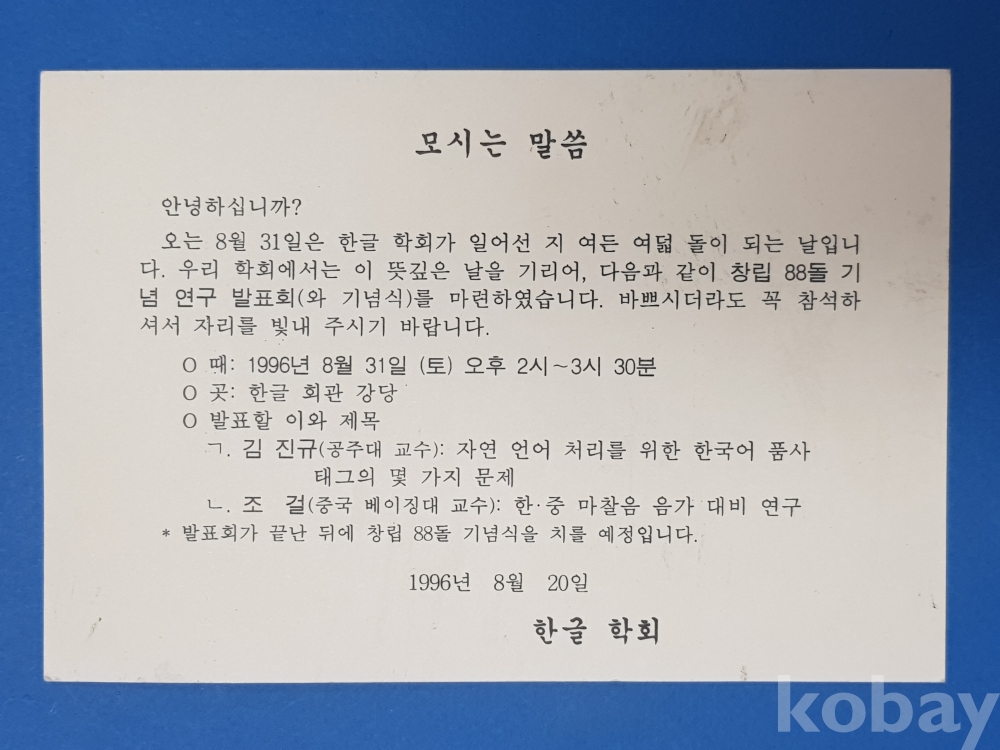 모시는 말씀
안녕하십니까?
오는 8월 31일은 한글 학회가 일어선 지 여든 여덟 돌이 되는 날입니
다. 우리 학회에서는 이 뜻깊은 날을 기리어, 다음과 같이 창립 88돌 기
념 연구 발표회(와 기념식)를 마련하였습니다. 바쁘시더라도 꼭 참석하
셔서 자리를 빛내 주시기 바랍니다.
O 때: 1996년 8월 31일 (토) 오후 2시~3시 30분
O 곳: 한글 회관 강당
O 발표할 이와 제목
ㄱ. 김 진규(공주대 교수): 자연 언어 처리를 위한 한국어 품사
태그의 몇 가지 문제
ㄴ. 조 걸(중국 베이징대 교수): 한·중 마찰음 음가 대비 연구
* 발표회가 끝난 뒤에 창립 88돌 기념식을 치를 예정입니다.
1996년 8월 20일
한글 학회
kobay